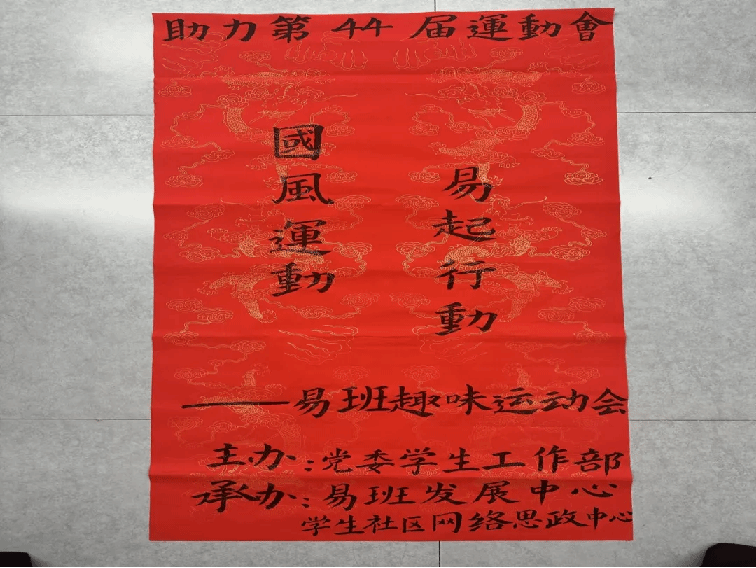 助力第44届運動會
國風運動
易起行動
——易班趣味运动会
主办:党委学生工作部
承办:易班发展中心
学生社区网络思政中心